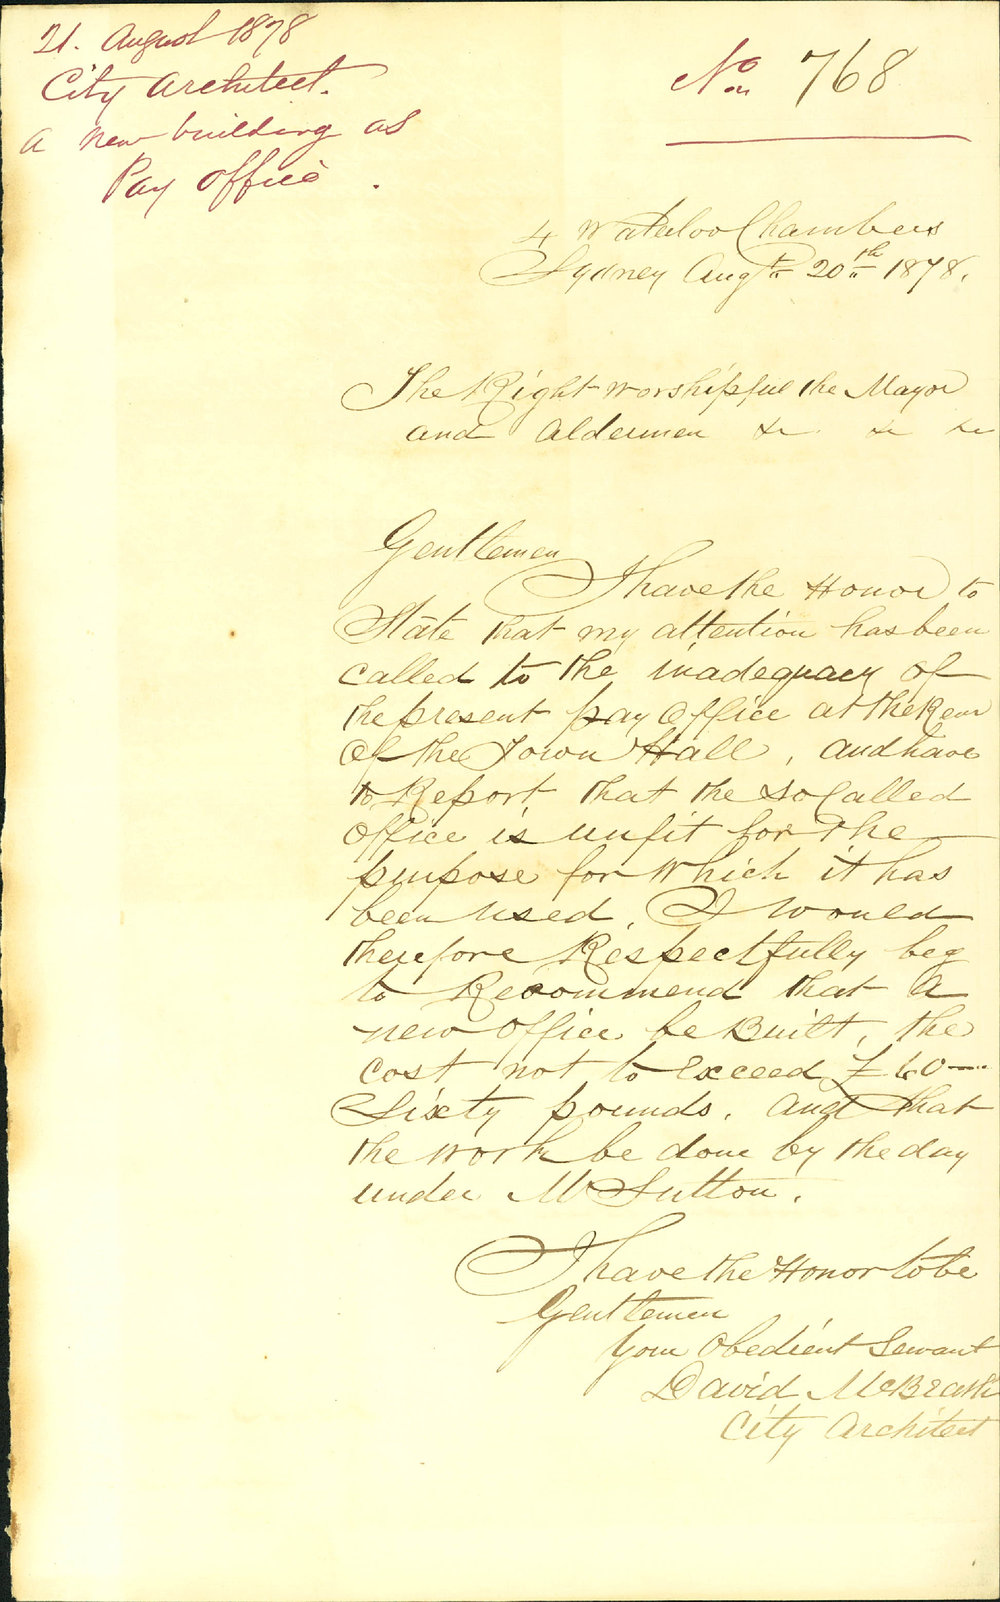 21. August 1878
City Architect.
A new building as
Pay Office.
No. 768
4 Waterloo Chambers
Sydney Augt. 20th 1878.
The Right Worshipful the Mayor
and Aldermen &c &c &c
Gentlemen
I have the Honor to
State that my attention has been
called to the inadequacy of
the present pay Office at the Rear
Of the Town Hall, and have
to Report that the So Called
Office is unfit for the
purpose for which it has
been used. I would
therefore Respectfully beg
to Recommend that A
new Office be Built, the
cost not to Exceed £60—
Sixty pounds. And that
the work be done by the day
under Mr Sutton.
I have the Honor to be
Gentlemen
Your Obedient Servant
David McBeath
City Architect